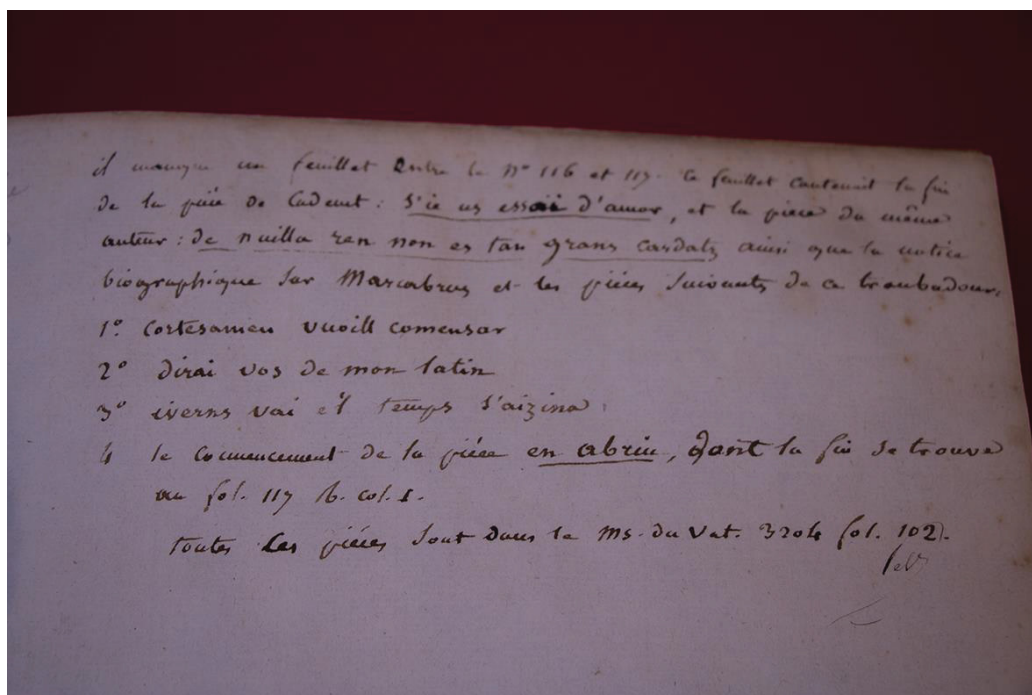 il manque un feuillet Entre le n° 116 et 117. Ce feuillet contenait la fin
de la pièce de Cadenet: S'ie us essaii d'amor, et la pièce du même
auteur: de nuilla ren non es tan grans cardatz ainsi que la notice
biographique sur Marcabrus et les pièces suivants de ce troubadour.
1° Cortesamen vuoill comensar
2° dirai vos de mon latin
3° iverns vai e'l temps s'aizina
4 le commencement de la pièce en abriu, dont la fin se trouve
au fol. 117 b. col. I.
toutes Les pièces sont dans le ms. du Vat. 3204 fol. 102).